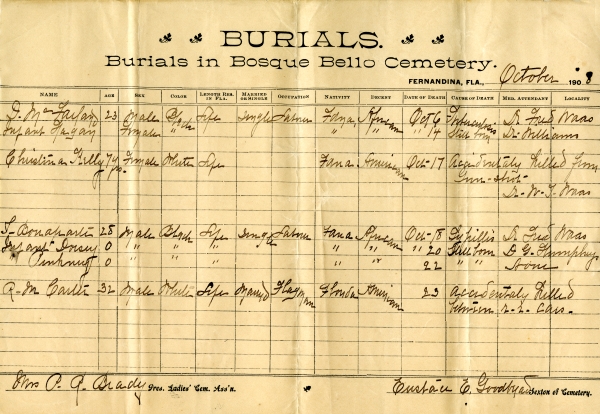 BURIALS.
Burials in Bosque Bello Cemetery.
FERNANDINA, FLA., October 1908
NAME AGE SEX COLOR LENGTH RES. IN FLA. MARRIED OR SINGLE OCCUPATION NATIVITY DECENT DATE OF DEATH CAUSE OF DEATH MED. ATTENDANT LOCALITY
23 Male Black Life Single Labor Fana African Oct 6 Tuberculosis Dr Fred Waas
Infant Female " " " 4 Still born Dr Williams
Christina Kelly Female White Life Fana American Oct-17 Accidentaly Killed from
Gun-shot
Dr. W. T. Waas
Bonaparte 28 Male Black Life Single Labor Fana African Oct-18 Dr Fred Waas
Infant Dorsey 0 " " " " " " 20 Still born D G Humphrys
0 " " " " " 22 " " None
R. M. Carter 32 Male White Life Married Flagman Florida American 23 Accidentaly Killed
between R.R. Cars.
Mrs P. R. Brady Pres. Ladies' Cem. Ass'n. Eustace E. Goodbread Sexton of Cemetery.